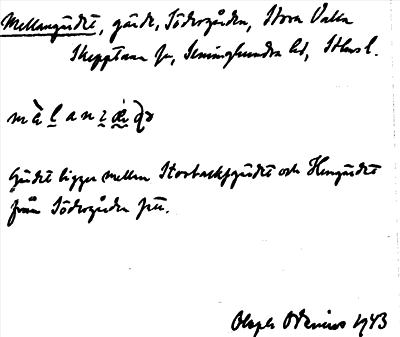 Mellangärdet, gärde, Södergården, Stora Valla
Skepptuna sn, Seminghundra hd, Sthms l.
Gärdet ligger mellan Storbacksgärdet och Hemgärdet
från Södergården sett.
1943